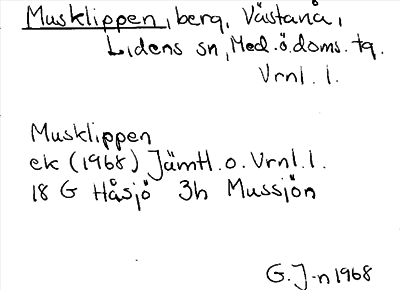 Musklippen, berg, Västanå,
Lidens sn, Med.ö.doms. tg.
Vrnl. l.
Musklippen
ek (1968) Jämtl. o. Vrnl. l.
18 G Håsjö 3h Mussjön
G. J-n 1968